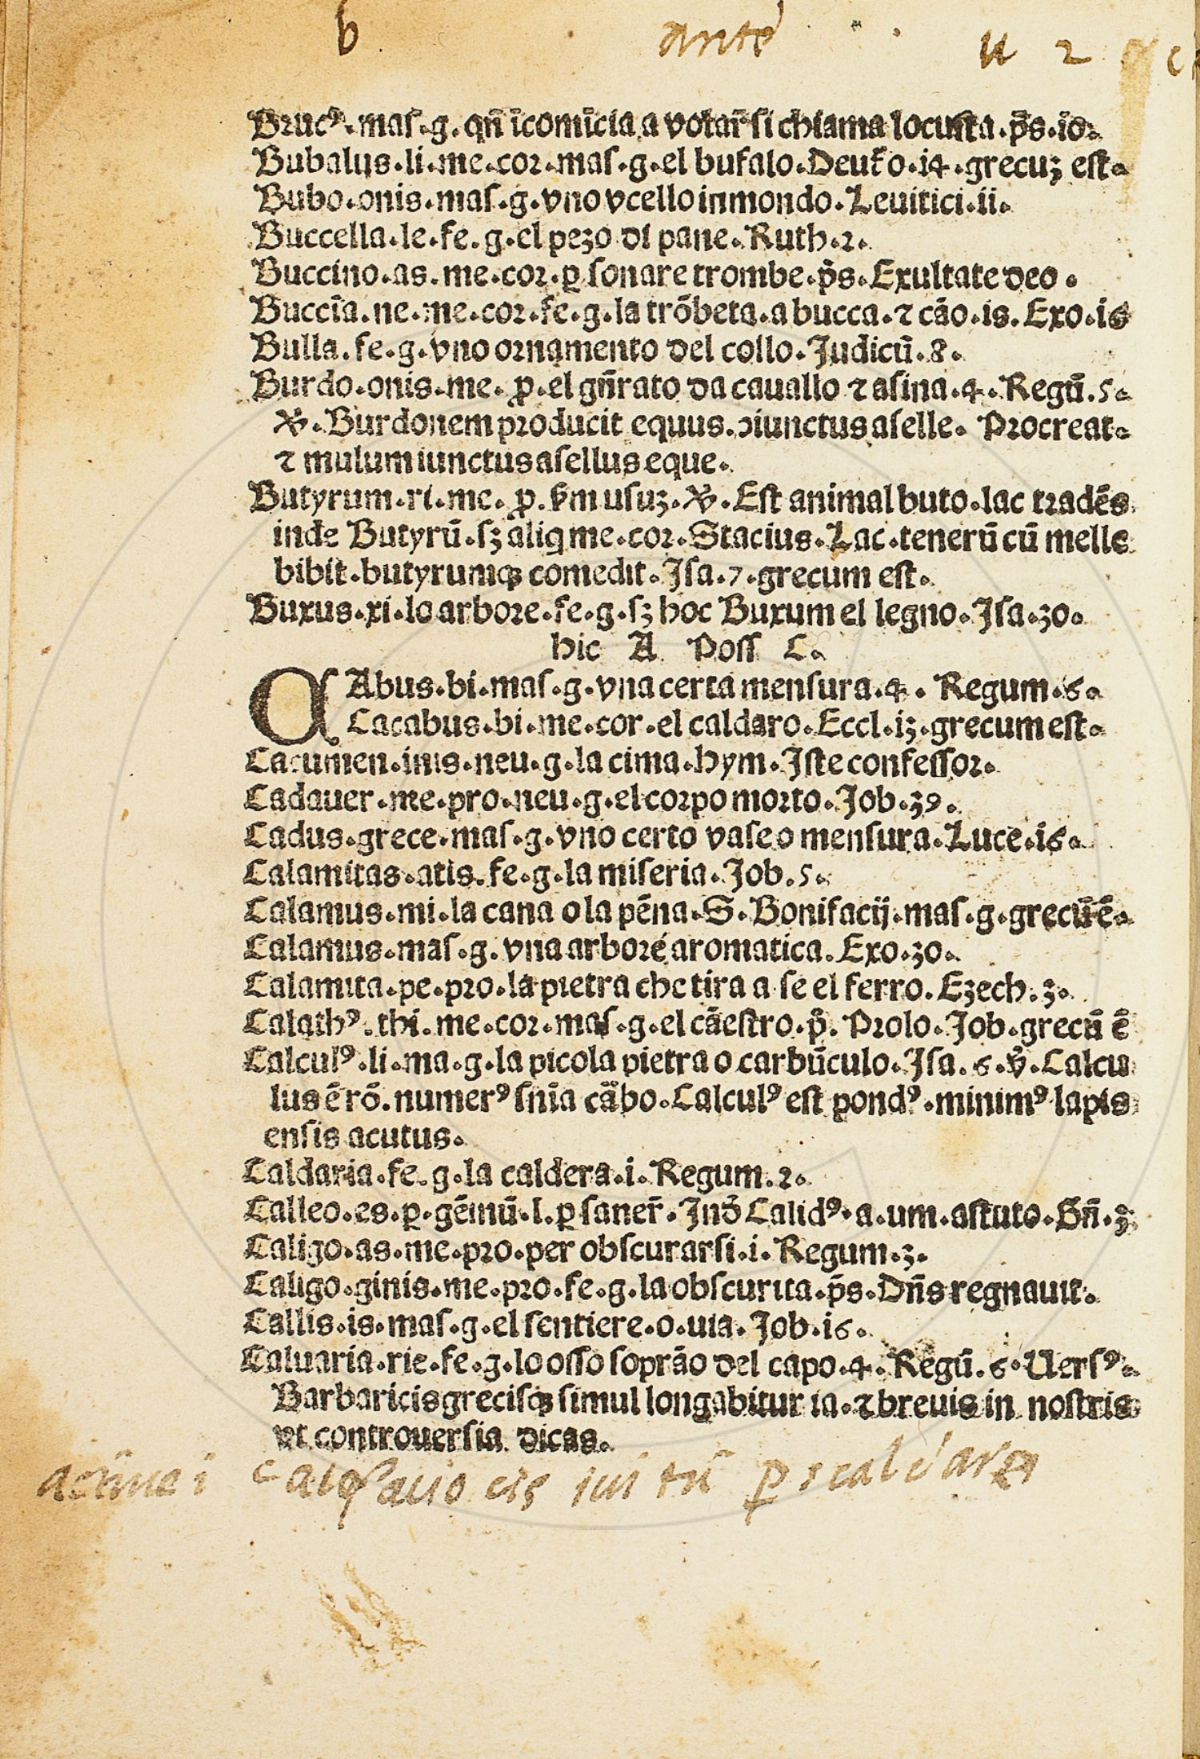 b ante u 2
Brucꝰ.mas.g.qñ īcomīcia a votar̄ si chiama locusta.p̄s.iō.
Bubalus.li.me.cor.mas.g.el bufalo.Deut̄o.i4.grecuꝫ est.
Bubo.onis.mas.g.vno vcello inmondo.Levitici.ii.
Buccella.le.fe.g.el pezo di pane.Ruth.2.
Buccino.as.me.cor.ꝑ sonare trombe.p̄s.Exultate deo.
Buccīa.ne.me.cor.fe.g.la trōbeta.a bucca.⁊ cāo.is.Exo.i6
Bulla.fe.g.vno ornamento del collo.Judicū.8.
Burdo.onis.me.ꝓ.el gn̄rato da cauallo ⁊ asina.4.Regū.5.
℣.Burdonem producit equus.ↄiunctus aselle.Procreat.
⁊ mulum iunctus asellus eque.
Butyrum.ri.me.ꝓ.ẜm usuꝫ.℣.Est animal buto.lac tradēs
inde Butyrū.sꝫ aliq me.cor.Stacius.Lac.tenerū cū melle
bibit.butyrumqꝫ comedit.Jsa.7.grecum est.
Buxus.xi.lo arbore.fe.g.sꝫ hoc Buxum el legno.Jsa.30.
hic A Poss C.
CAbus.bi.mas.g.vna certa mensura.4.Regum.6.
Cacabus.bi.me.cor.el caldaro.Eccl.i3.grecum est.
Cacumen.inis.neu.g.la cima.hym.Jste confessor.
Cadauer.me.pro.neu.g.el corpo morto.Job.39.
Cadus.grece.mas.g.vno certo vase o mensura.Luce.i6.
Calamitas.atis.fe.g.la miseria.Job.5.
Calamus.mi.la cana o la pēna.S.Bonifacij.mas.g.grecū ē.
Calamus.mas.g.vna arbore aromatica.Exo.30.
Calamita.pe.pro.la pietra che tira a se el ferro.Ezech.3.
Calathꝰ.thi.me.cor.mas.g.el cāestro.p̄.Prolo.Job.grecū ē
Calculꝰ.li.ma.g.la picola pietra o carbūculo.Jsa.6.v̄.Calcu
lus ē rō.numerꝰ sn̄ia cābo.Calculꝰ est pondꝰ.minimꝰ lapis
ensis acutus.
Caldaria.fe.g.la caldera.i.Regum.2.
Calleo.es.ꝑ.gēmū.l.ꝑ saner̄.Jnō Calidꝰ.a.um.astuto.Gn̄.3.
Caligo.as.me.pro.per obscurarsi.i.Regum.3.
Caligo.ginis.me.pro.fe.g.la obscurita.p̄s.Dn̄s regnauit.
Callis.is.mas.g.el sentiere.o.uia.Job.i6.
Caluaria.rie.fe.g.lo osso soprāo del capo.4.Regū.6.Uersꝰ.
Barbaricis grecisqꝫ simul longabitur ia.⁊ brevis in nostris
ut controuersia dicas.
calefacio cis ꝑ scaldare